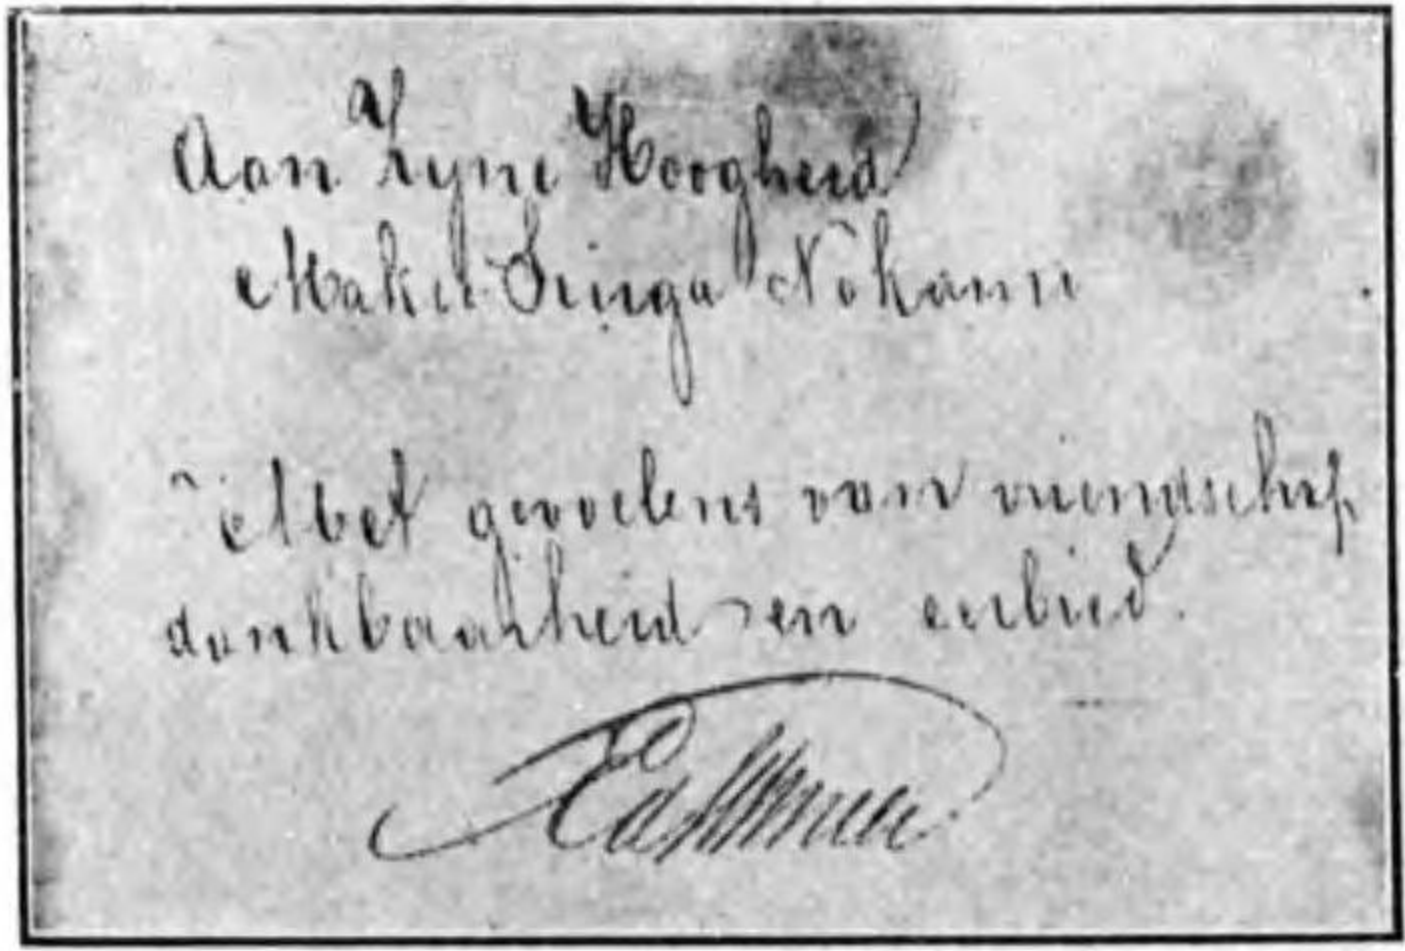 Aan Zyne Hoogheid
Makil Singa Nokann
Met gevoelens van vriendschap
dankbaarheid en eerbied.